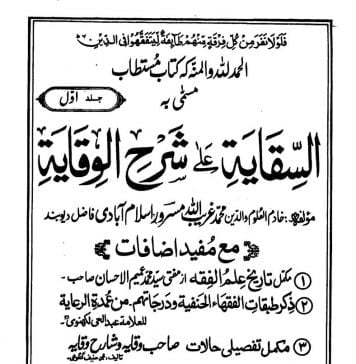 فَلَوْلَا نَفَرَ مِنْ كُلِّ فِرْقَةٍ مِّنْهُمْ طَائِفَةٌ لِّيَتَفَقَّهُوْا فِي الدِّيْنِ
الحمد للہ والمنہ کہ کتاب مستطاب
مسمّٰی بہ
جلد اوّل
السِّقَايَة عَلٰى شَرْحِ الْوِقَايَة
مؤلفہ: خادم العلوم والدین محمد غریب اللہ مسرور اسلام آبادی فاضل دیوبند
مع مفید اضافات
① مکمل تاریخ علم الفقہ از مفتی سید محمد عمیم الاحسان صاحب-
② ذکر طبقات الفقہاء الحنفیة ودرجاتهم. من عمدة الرعایة
للعلامة عبدالحی لکھنوی
③ مکمل تفصیلی حالات صاحب وقایہ وشارح وقایہ